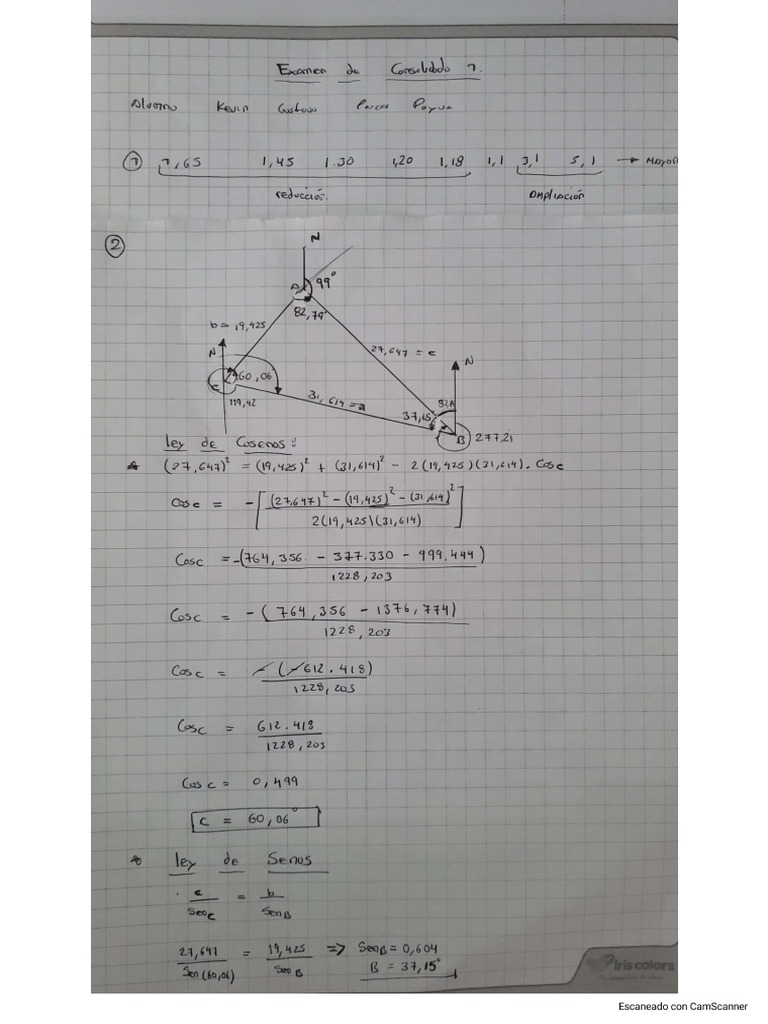 Examen de Consolidado 1.
Alumno Kevin Gustavo
① 1,65 1,45 1.30 1,20 1,18 1,1 3,1 5,1 → Mayor
reducción. Ampliación
②
N
A 99°
82,79°
b = 19,425
27,647 = c
N
N
C 60,06
31,614 = a
119,42
37,15
B 277,21
Ley de Cosenos:
(27,647)² = (19,425)² + (31,614)² - 2(19,425)(31,614). Cos c
Cos c = -[(27,647)² - (19,425)² - (31,614)²]
2(19,425)(31,614)
Cos c = -(764,356 - 377.330 - 999.444)
1228,203
Cos c = -(764,356 - 1376,774)
1228,203
Cos c = -(-612.418)
1228,203
Cos c = 612.418
1228,203
Cos c = 0,499
C = 60,06°
Ley de Senos
c = b
Sen c Sen B
27,647 = 19,425 => Sen B = 0,604
Sen(60,06) Sen B B = 37,15°
iriscolors
Escaneado con CamScanner